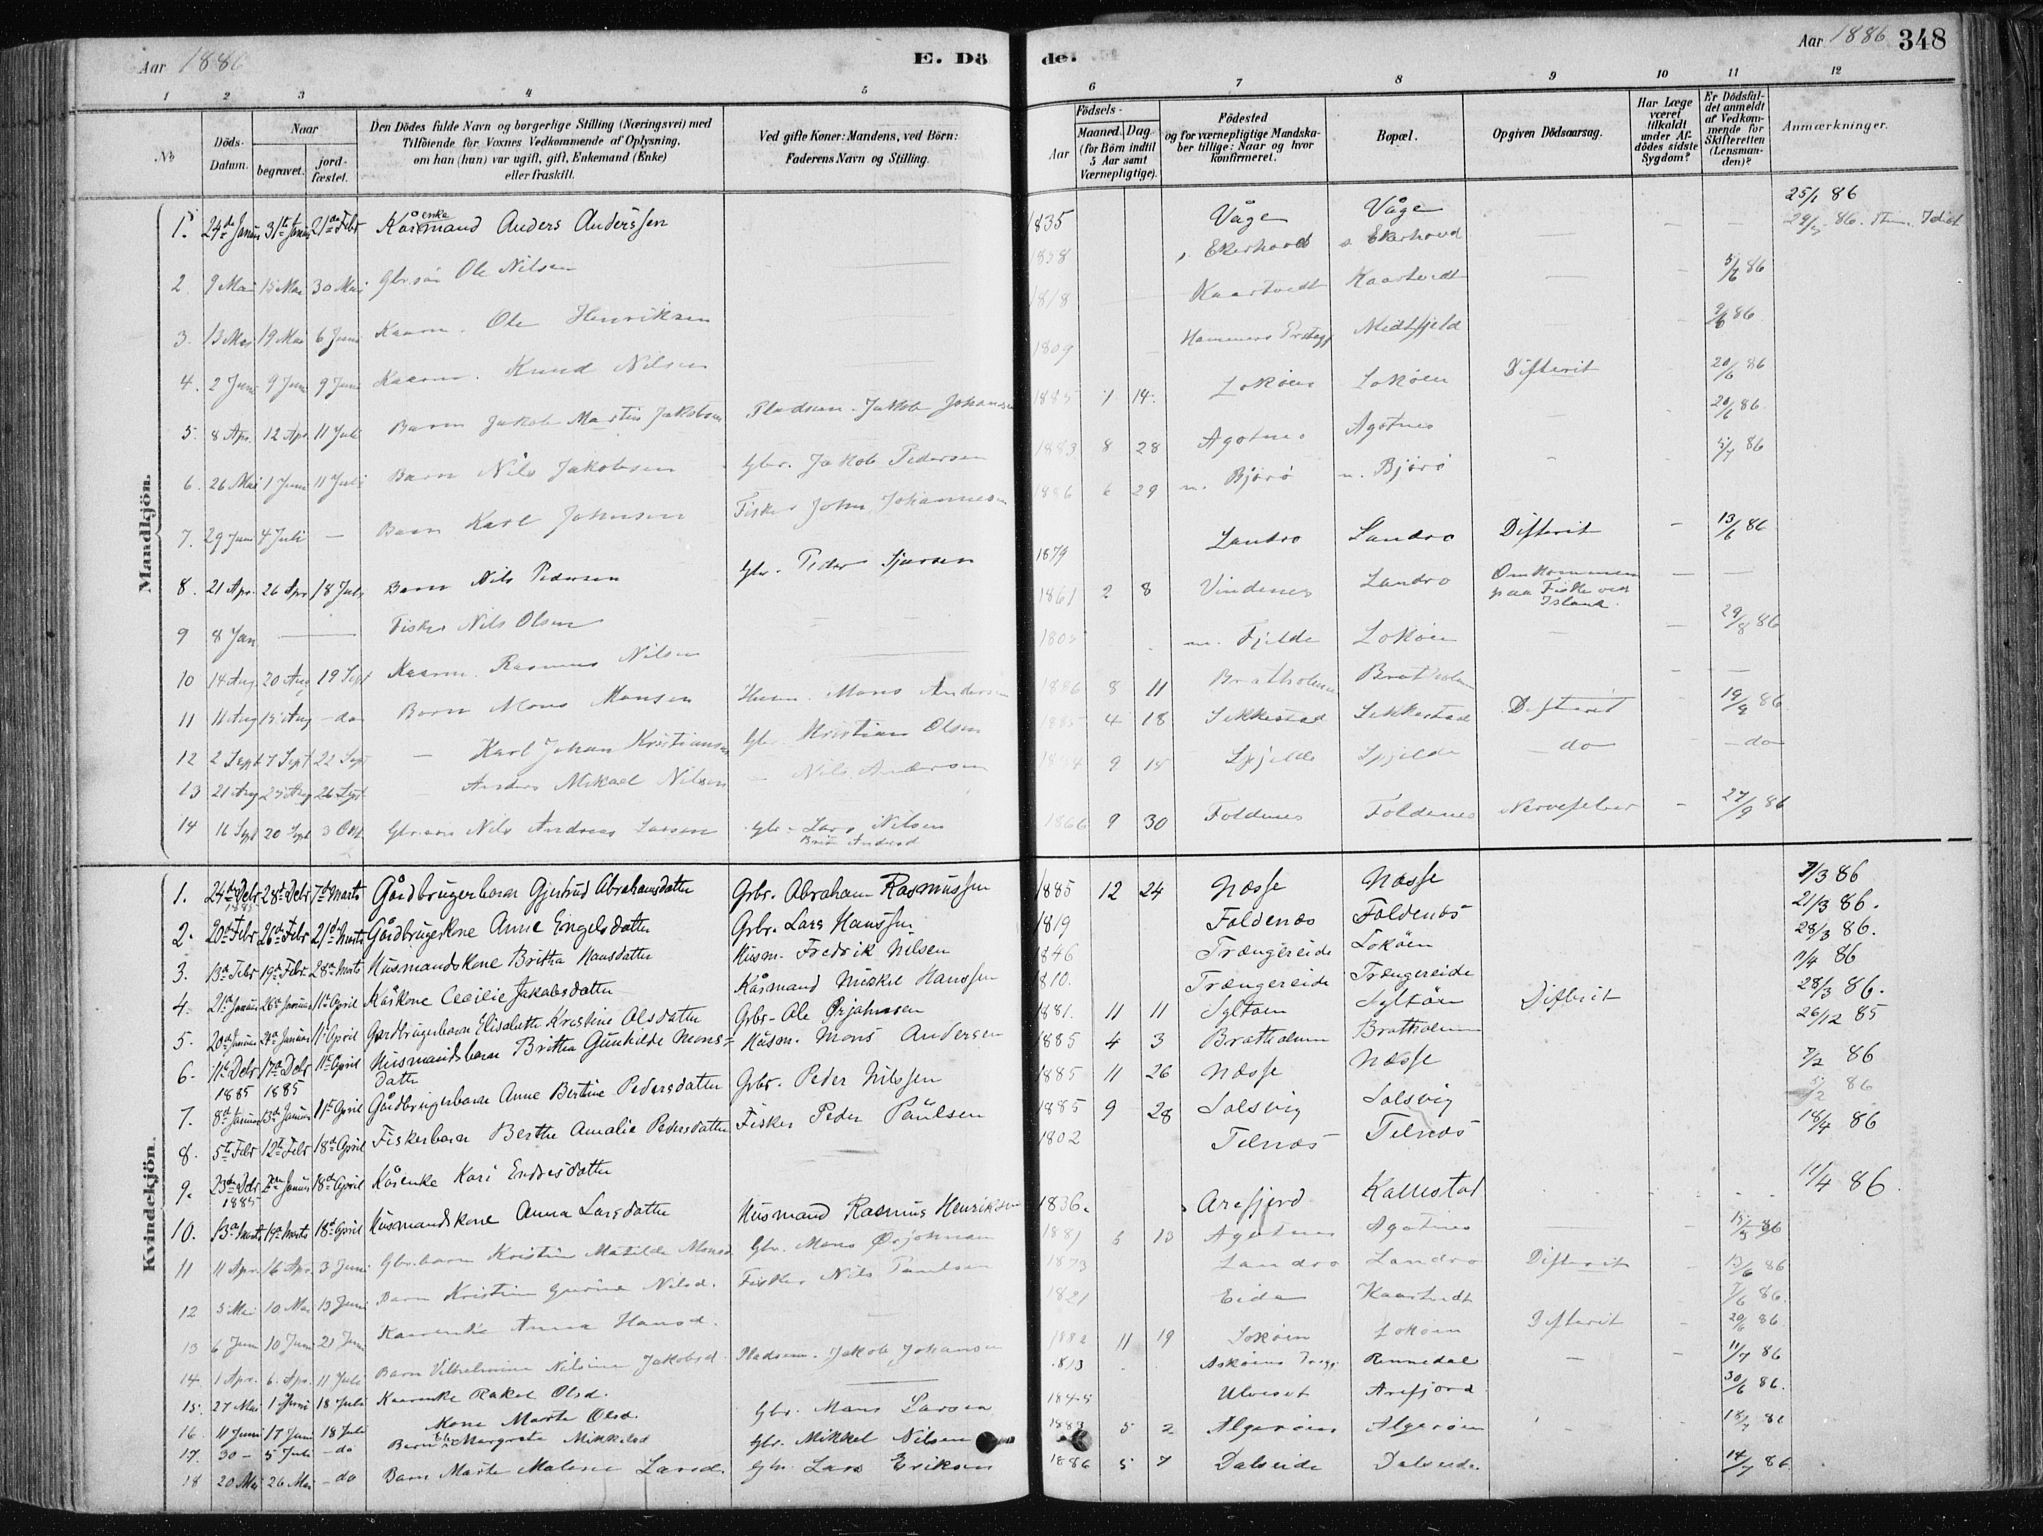 Aar 1886 E. Döde. Aar 1886 348
1 2 3 4 5 6 7 8 9 10 11 12
No
Döds-Datum.
Naar
begravet.
jord-fæstet.
Den Dödes fulde Navn og borgerlige Stilling (Næringsvei) med
Tilföiende for Voxnes Vedkommende af Oplysning,
om han (hun) var ugift, gift, Enkemand (Enke)
eller fraskilt.
Ved gifte Koner: Mandens, ved Börn:
Faderens Navn og Stilling.
Födsels-
Aar
Maaned. Dag.
(for Börn indtil
5 Aar samt
Værnepligtige).
Födested
og for værnepligtige Mandska-
ber tillige: Naar og hvor
konfirmeret.
Bopæl.
Opgiven Dödsaarsag.
Har Læge
været
tilkaldt
under Af-
dödes sidste
Sygdom?
Er Dödsfal-
det anmeldt
af Vedkom-
mende for
Skifteretten
(Lensman-
den)?
Anmærkninger.
Mandkjön.
1. 24de Januar 31te Januar 21de Febr Kåsmand enke Anders Anderssen 1835 Våge Våge — 25/1 86
2. 9 Mai 15 Mai 30 Mai Gbr.søn Ole Nilsen — 1838 Ekerhovd Ekerhovd — 29/5 86. Idiot
3. 13 Mai 19 Mai 6 Juni Kaarm. Ole Henriksen — 1818 Kaartvedt Kaartvedt — 5/6 86
4. 2 Juni 9 Juni 9 Juni Kaarm. Knud Nilsen — 1809 Hammers Prstegj Midtfjeld 9/6 86
5. 8 Apr. 12 Apr. 11 Juli Barn Jakob Martin Jakobsen Pladsm. Jakob Johansen 1885 1 14. Lokøen Lokøen Difterit 20/6 86
6. 26 Mai 1 Juni 11 Juli Barn Nils Jakobsen Gbr. Jakob Pedersen 1883 8 28 Agotnes Agotnes — 20/6 86.
7. 29 Juni 4 Juli — Barn Karl Johnsen Fisker John Johannesen 1886 6 29 n. Bjørø n. Bjørø — 5/7 86
8. 21 Apr. 26 Apr. 18 Juli Barn Nils Pedersen Gbr. Peder 1879 Landro Landro Difterit — 13/6 86
9 8 Jan — — Fisker Nils Olsen — 1861 2 8 Vindenes Landro Omkommen paa Fiske ved Island. — —
10 14 Aug 20 Aug 19 Sept Kaarm. Rasmus Nilsen — Fjelde Lokøen — 29/8 86
11 11 Aug 15 Aug — do Barn Mons Monsen Husm. Mons Andersen 1886 8 11 Bratholmen Bratholm — —
12 2 Sept 7 Sept 22 Sept — Karl Johan Kristiansen Gbr. Kristian Olsen 1885 4 18 Sekkestad Sekkestad Difterit 19/9 86
13 21 Aug 25 Aug 26 Sept — Anders Mikael Nilsen — Nils Andersen 1884 9 15 Spjelde Spjelde — do — do
14 16 Sept 20 Sept 3 Okt Gbr.søn Nils Andreas Larsen Gbr. Lars Nilsen Brita Andersd 1866 9 30 Foldenes Foldenes Nervefeber — 27/9 86
Kvindekjön.
1. 24de Debr 1885 28de Debr 7de Marts Gårdbrugerbarn Gjertrud Abrahamsdatter Grbr. Abraham Rasmussen 1885 12 24 Næsse Næsse 7/3 86
2. 20de Febr 26de Febr 21de Marts Gårdbrugerkone Anne Engelsdatter Grbr. Lars Hanssen 1819 Foldenæs Foldenæs 21/3 86.
3. 13de Febr 19de Febr 28de Marts Husmandskone Britha Hansdatter Husm. Fredrik Nilsen 1846 Trængereide Lokøen 28/3 86.
4. 21de Januar 26de Januar 11te April Kårkone Cecilie Jakobsdatter Kåsmand Mikkel Hanssen 1810. Trængereide Trængereide 11/4 86
5. 20de Januar 24de Januar 11te April Gårdbrugerbarn Elisabeth Kristine Olsdatter Grbr. Ole Ørjahnsen 1881. 11 11 Syltøen Syltøen Difterit 28/3 86.
6. 11te Debr 1885 17de Debr 1885 11te April Husmandsbarn Britha Gunhilde Mons-datter Husm. Mons Andersen 1885 4 3 Bratholmen Bratholmen 26/12 85
7. 8de Januar 13de Januar 11te April Gårdbrugerbarn Anne Bertine Pedersdatter Grbr. Peder Nilssen 1885 11 26 Næsse Næsse 7/2 86
8. 5te Febr 12te Febr 18de April Fiskerbarn Berthe Amalie Pedersdatter Fisker Peder Paulsen 1885 9 28 Solsvig Solsvig 5/2 86
9. 23de Debr 1885 Januar 18de April Kårenke Kari Endresdatter — 1802 Telnæs Telnæs 18/4 86
10. 13de Marts 19de Marts 18de April Husmandskone Anna Larsdatter Husmand Rasmus Henriksen 1836. Arefjord Kallestad 11/4 86.
11 11 Apr. 16 Apr. 3 Juni Gbr.barn Kristine Matilde Monsd. Gbr. Mons Ørjohnsen 1881 6 13 Agotnes Agotnes — 15/5 86
12 5 Mai 10 Mai 13 Juni Barn Kristine Gurine Nilsd. Fisker Nils Paulsen 1873 Landro Landro Difterit — 13/6 86
13 6 Juni 10 Juni 21 Juni Kaarenke Anna Hansd. — 1821 Eide Kaartvedt 7/6 86.
14. 1 Apr. 6. Apr. 11 Juli Barn Vilhelmine Nilsine Jakobsd. Pladsm. Jakob Johansen 1882 11 19 Lokøen Lokøen Difterit — 20/6 86
15. 27 Mai 1 Juni 18 Juli Kaarenke Rakel Olsd. — 1813 Askøens Prstgj. Rennedal — 11/7 86
16. 11 Juni 17 Juni 18 Juli Kone Marta Olsd. Gbr. Mons Larsen 1845 Ulveset Arefjord 30/6 86.
17. 30 — 5 Juli — do Barn Margreta Mikkelsd Gbr. Mikkel Nilsen 1883 5 2 Algerøen Algerøen 18/7 86
18 20 Mai 26 Mai — do Barn Marte Malene Larsd. Gbr. Lars Eriksen 1886 5 7 Dalseide Dalseide. 14/7 86